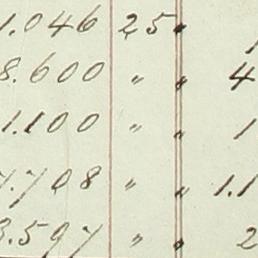 1.046 25. 1
8.600 " " 4
1.100 " " 1
7.708 " " 1.1
3.597 " " 2